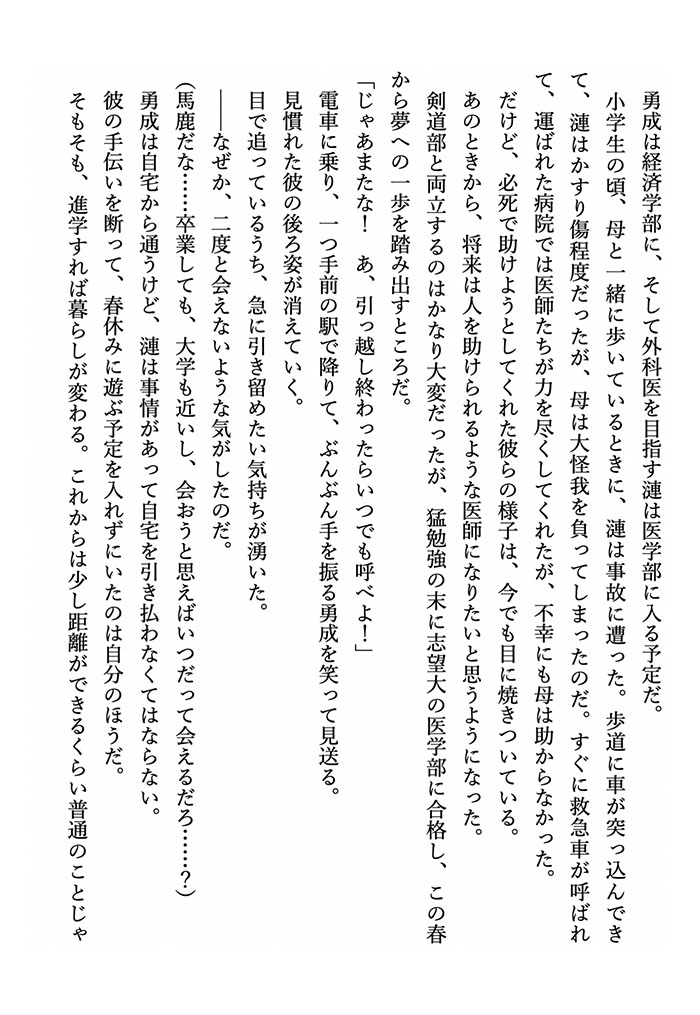 勇成は経済学部に、そして外科医を目指す漣は医学部に入る予定だ。
小学生の頃、母と一緒に歩いているときに、漣は事故に遭った。歩道に車が突っ込んでき
て、漣はかすり傷程度だったが、母は大怪我を負ってしまったのだ。すぐに救急車が呼ばれ
て、運ばれた病院では医師たちが力を尽くしてくれたが、不幸にも母は助からなかった。
だけど、必死で助けようとしてくれた彼らの様子は、今でも目に焼きついている。
あのときから、将来は人を助けられるような医師になりたいと思うようになった。
剣道部と両立するのはかなり大変だったが、猛勉強の末に志望大の医学部に合格し、この春
から夢への一歩を踏み出すところだ。
「じゃあまたな！　あ、引っ越し終わったらいつでも呼べよ！」
電車に乗り、一つ手前の駅で降りて、ぶんぶん手を振る勇成を笑って見送る。
見慣れた彼の後ろ姿が消えていく。
目で追っているうち、急に引き留めたい気持ちが湧いた。
――なぜか、二度と会えないような気がしたのだ。
（馬鹿だな……卒業しても、大学も近いし、会おうと思えばいつだって会えるだろ……？）
勇成は自宅から通うけど、漣は事情があって自宅を引き払わなくてはならない。
彼の手伝いを断って、春休みに遊ぶ予定を入れずにいたのは自分のほうだ。
そもそも、進学すれば暮らしが変わる。これからは少し距離ができるくらい普通のことじゃ